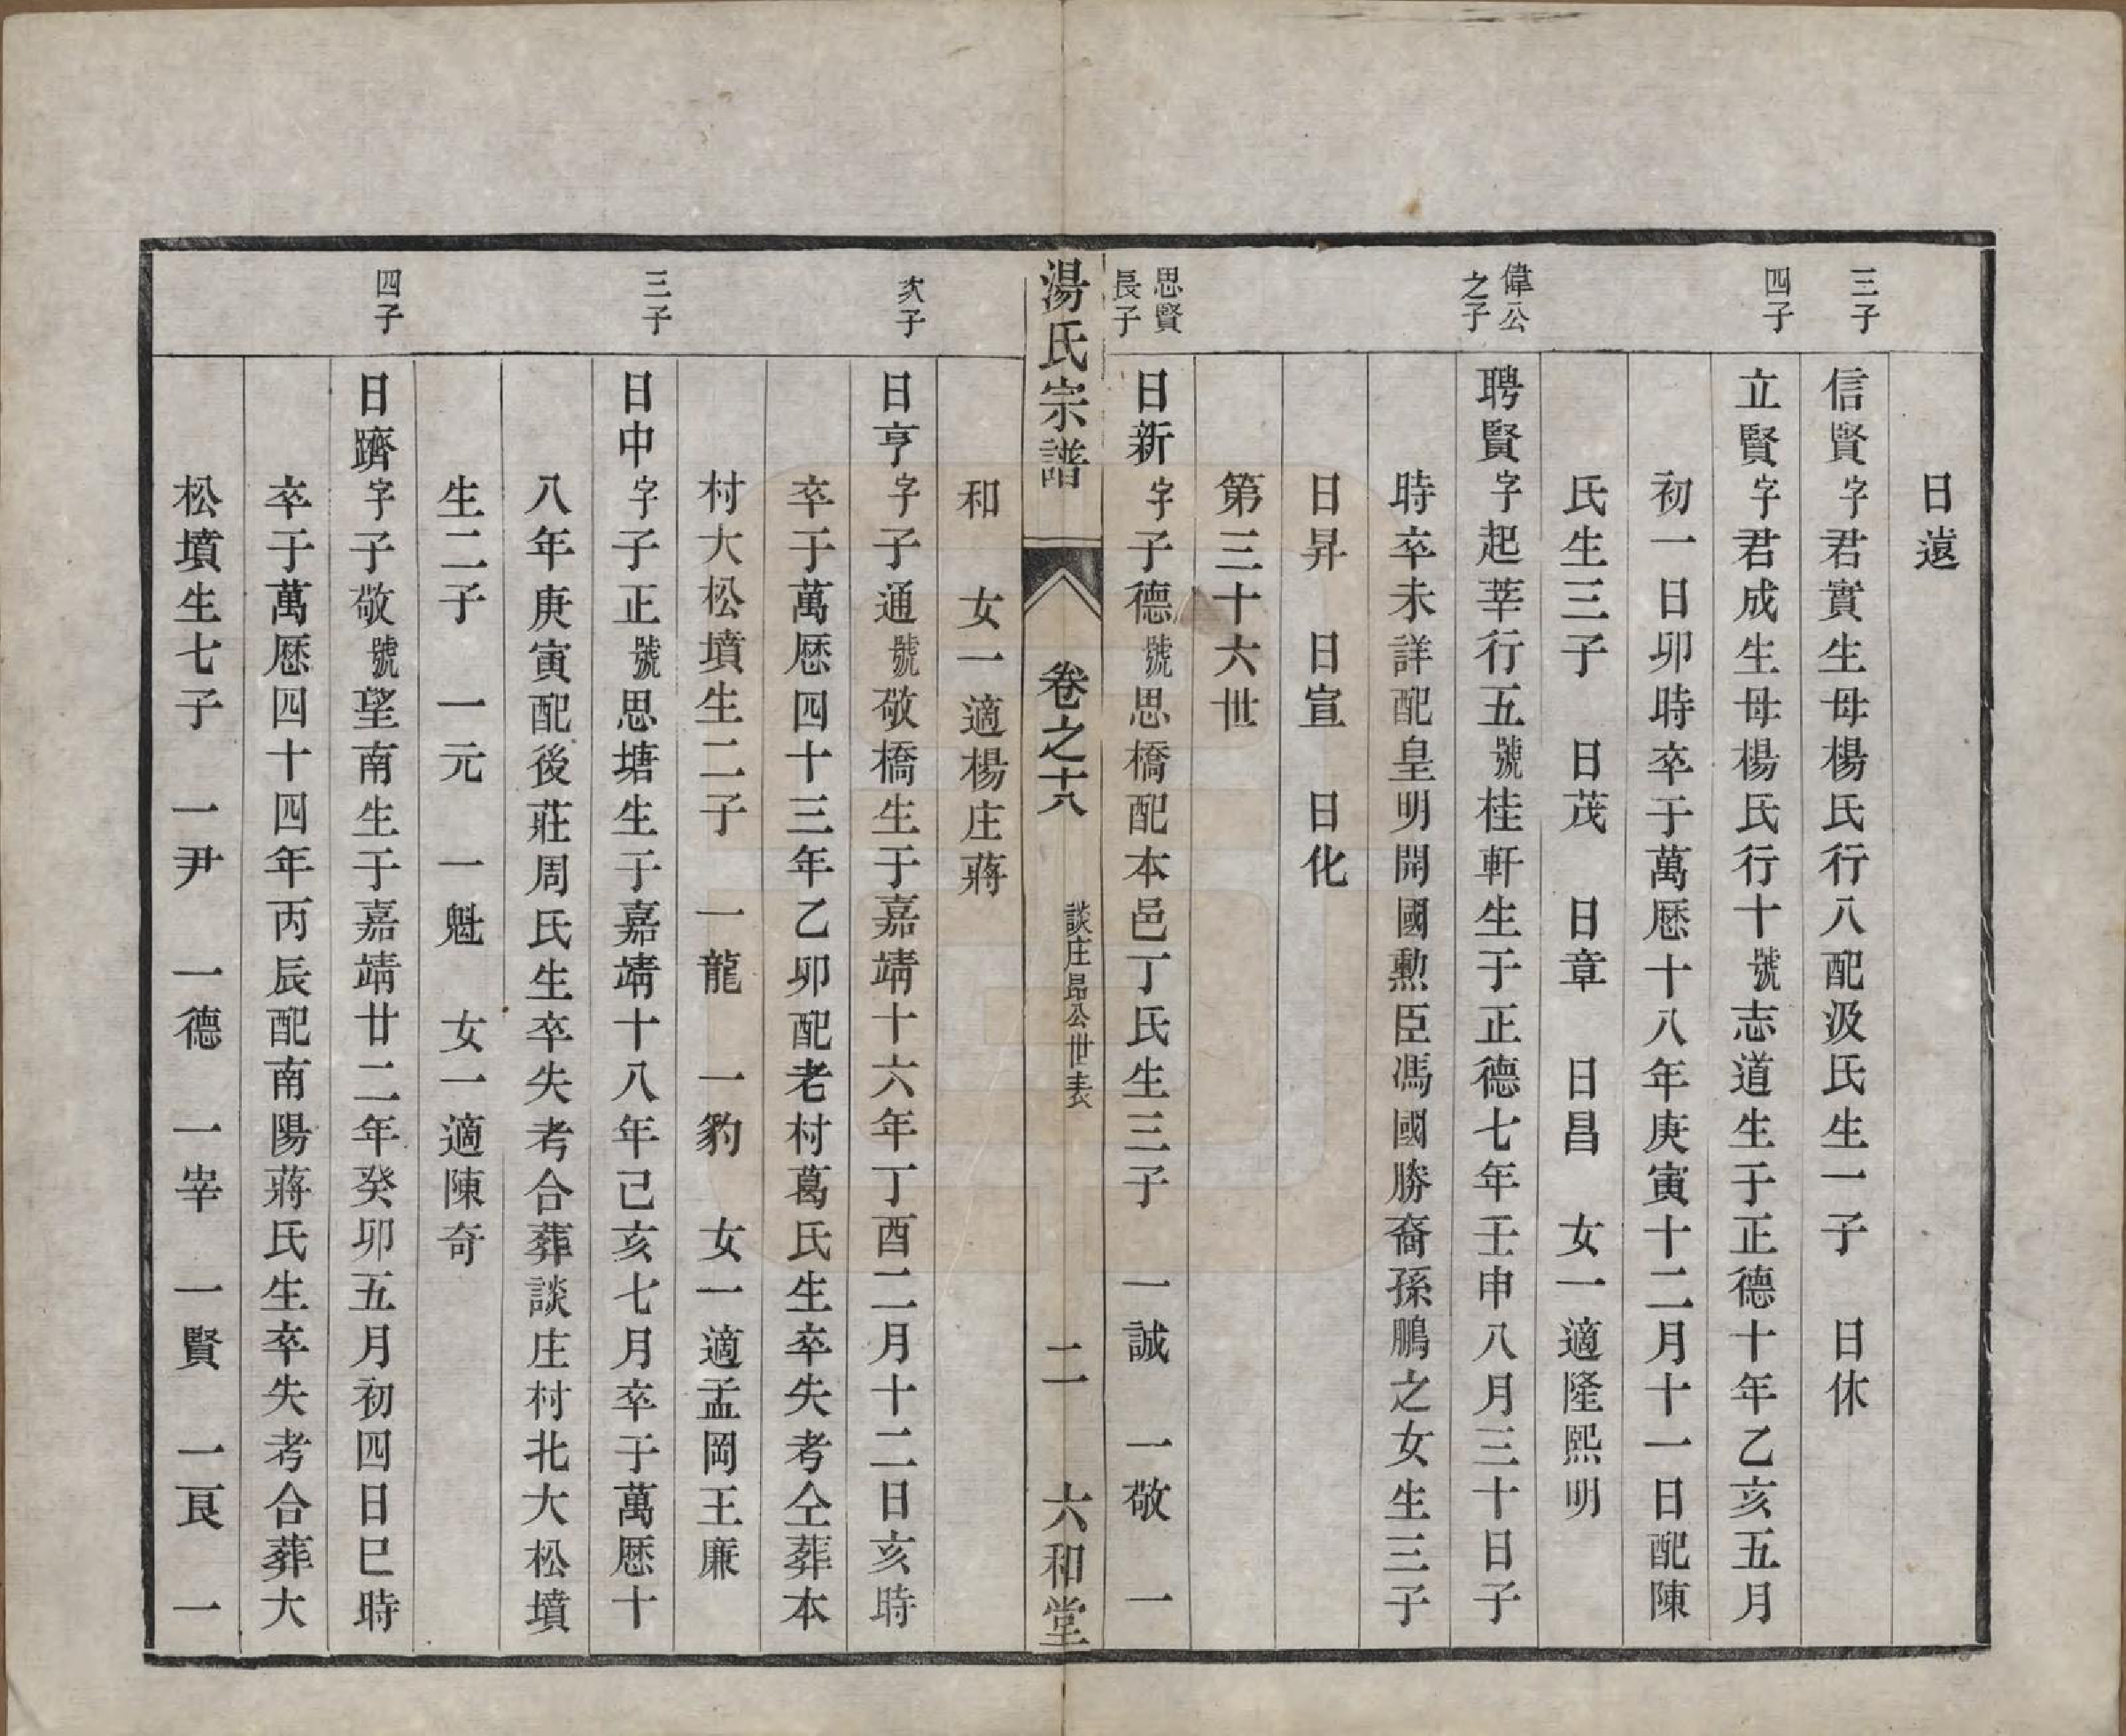 日遠
三子
信賢字君實生母楊氏行八配汲氏生一子　日休
四子
立賢字君成生母楊氏行十號志道生于正德十年乙亥五月
初一日卯時卒于萬歷十八年庚寅十二月十一日配陳
氏生三子　日茂　日章　日昌　女一適隆熙明
偉公之子
聘賢字起莘行五號桂軒生于正德七年壬申八月三十日子
時卒未詳配皇明開國勲臣馮國勝裔孫鵬之女生三子
日昇　日宣　日化
第三十六世
思賢長子
日新字子德號思橋配本邑丁氏生三子　一誠　一敬　一
湯氏宗譜　卷之十八　談庄昂公世表　二　六和堂
和　女一適楊庄蔣
次子
日亨字子通號敬橋生于嘉靖十六年丁酉二月十二日亥時
卒于萬歷四十三年乙卯配老村葛氏生卒失考仝葬本
村大松墳生二子　一龍　一豹　女一適孟岡王廉
三子
日中字子正號思塘生于嘉靖十八年己亥七月卒于萬歷十
八年庚寅配後莊周氏生卒失考合葬談庄村北大松墳
生二子　一元　一魁　女一適陳奇
四子
日躋字子敬號望南生于嘉靖廿二年癸卯五月初四日巳時
卒于萬歷四十四年丙辰配南陽蔣氏生卒失考合葬大
松墳生七子　一尹　一德　一宰　一賢　一良　一